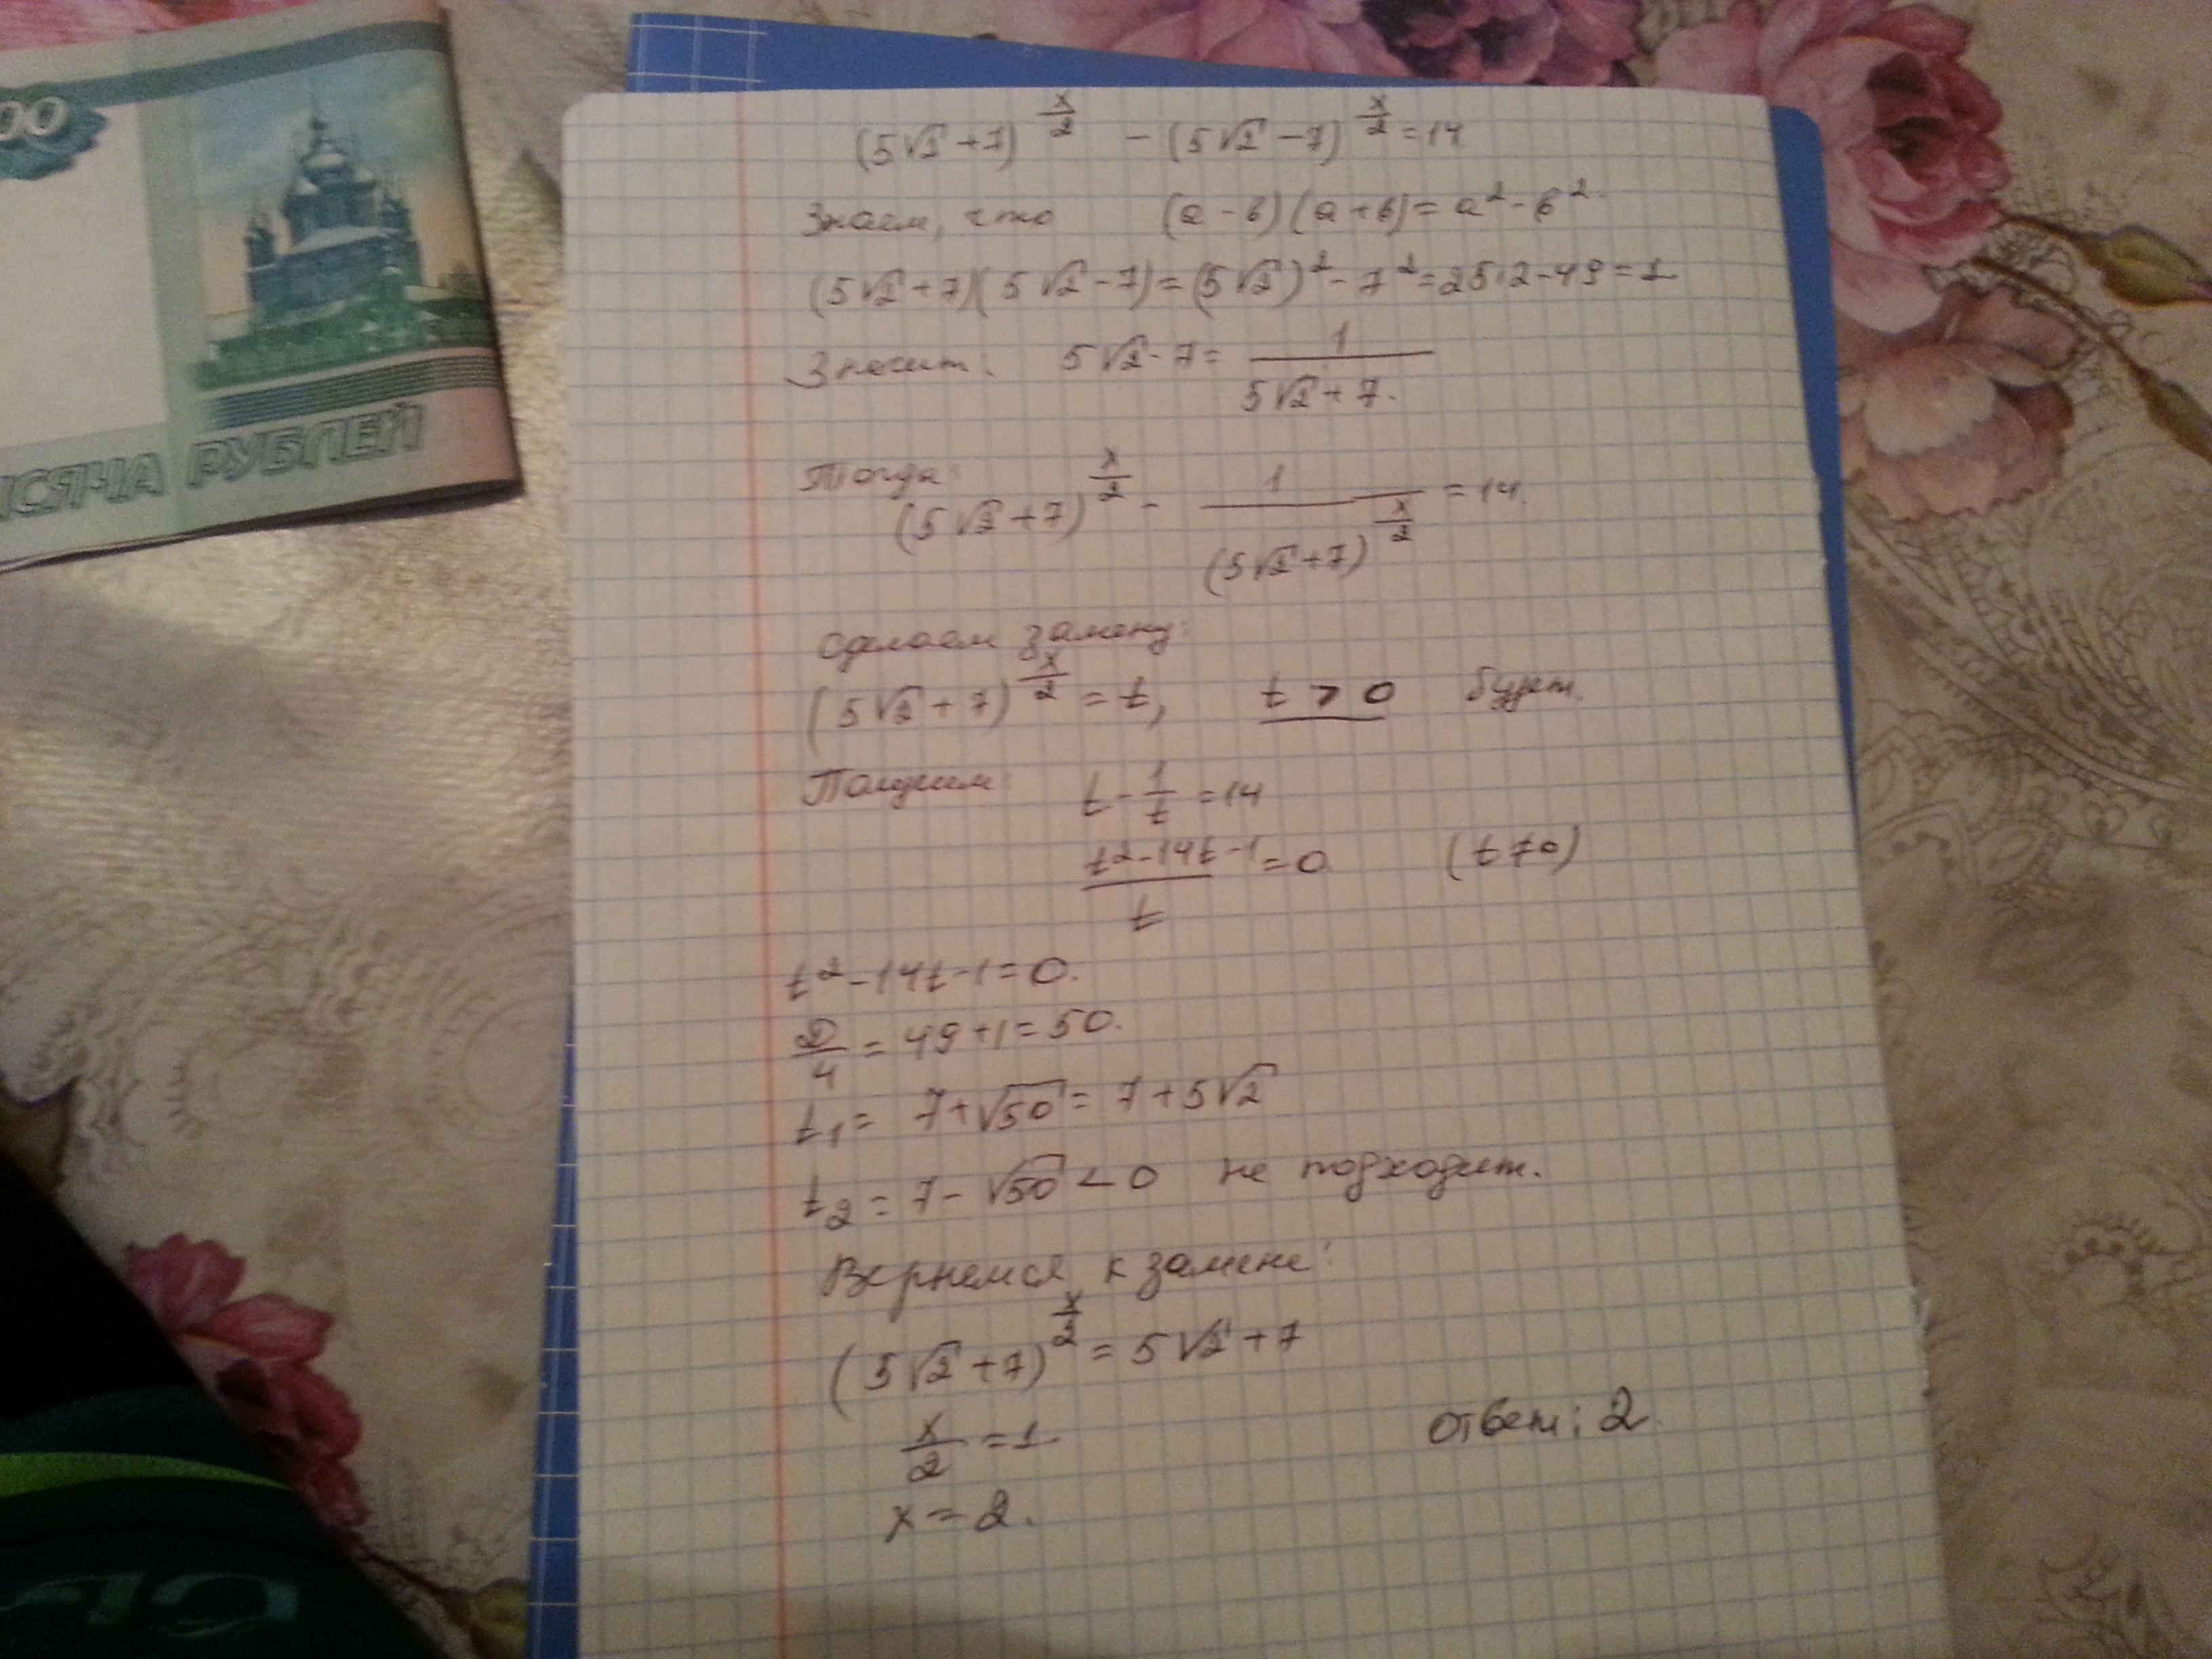 00
ЫСЯЧА РУБЛЕЙ
(5√2+7)^(x/2) − (5√2−7)^(x/2) = 14
Знаем, что (a−b)(a+b) = a²−b².
(5√2+7)(5√2−7) = (5√2)²−7² = 25·2−49 = 1
Значит: 5√2−7 = 1/(5√2+7).
Тогда:
(5√2+7)^(x/2) − 1/(5√2+7)^(x/2) = 14.
Сделаем замену:
(5√2+7)^(x/2) = t, t > 0 будет.
Получим: t − 1/t = 14
(t²−14t−1)/t = 0 (t≠0)
t²−14t−1=0.
D/4 = 49+1 = 50.
t₁ = 7+√50 = 7+5√2
t₂ = 7−√50 < 0 не подходит.
Вернемся к замене:
(5√2+7)^(x/2) = 5√2+7
x/2 = 1
Ответ: 2
x = 2.